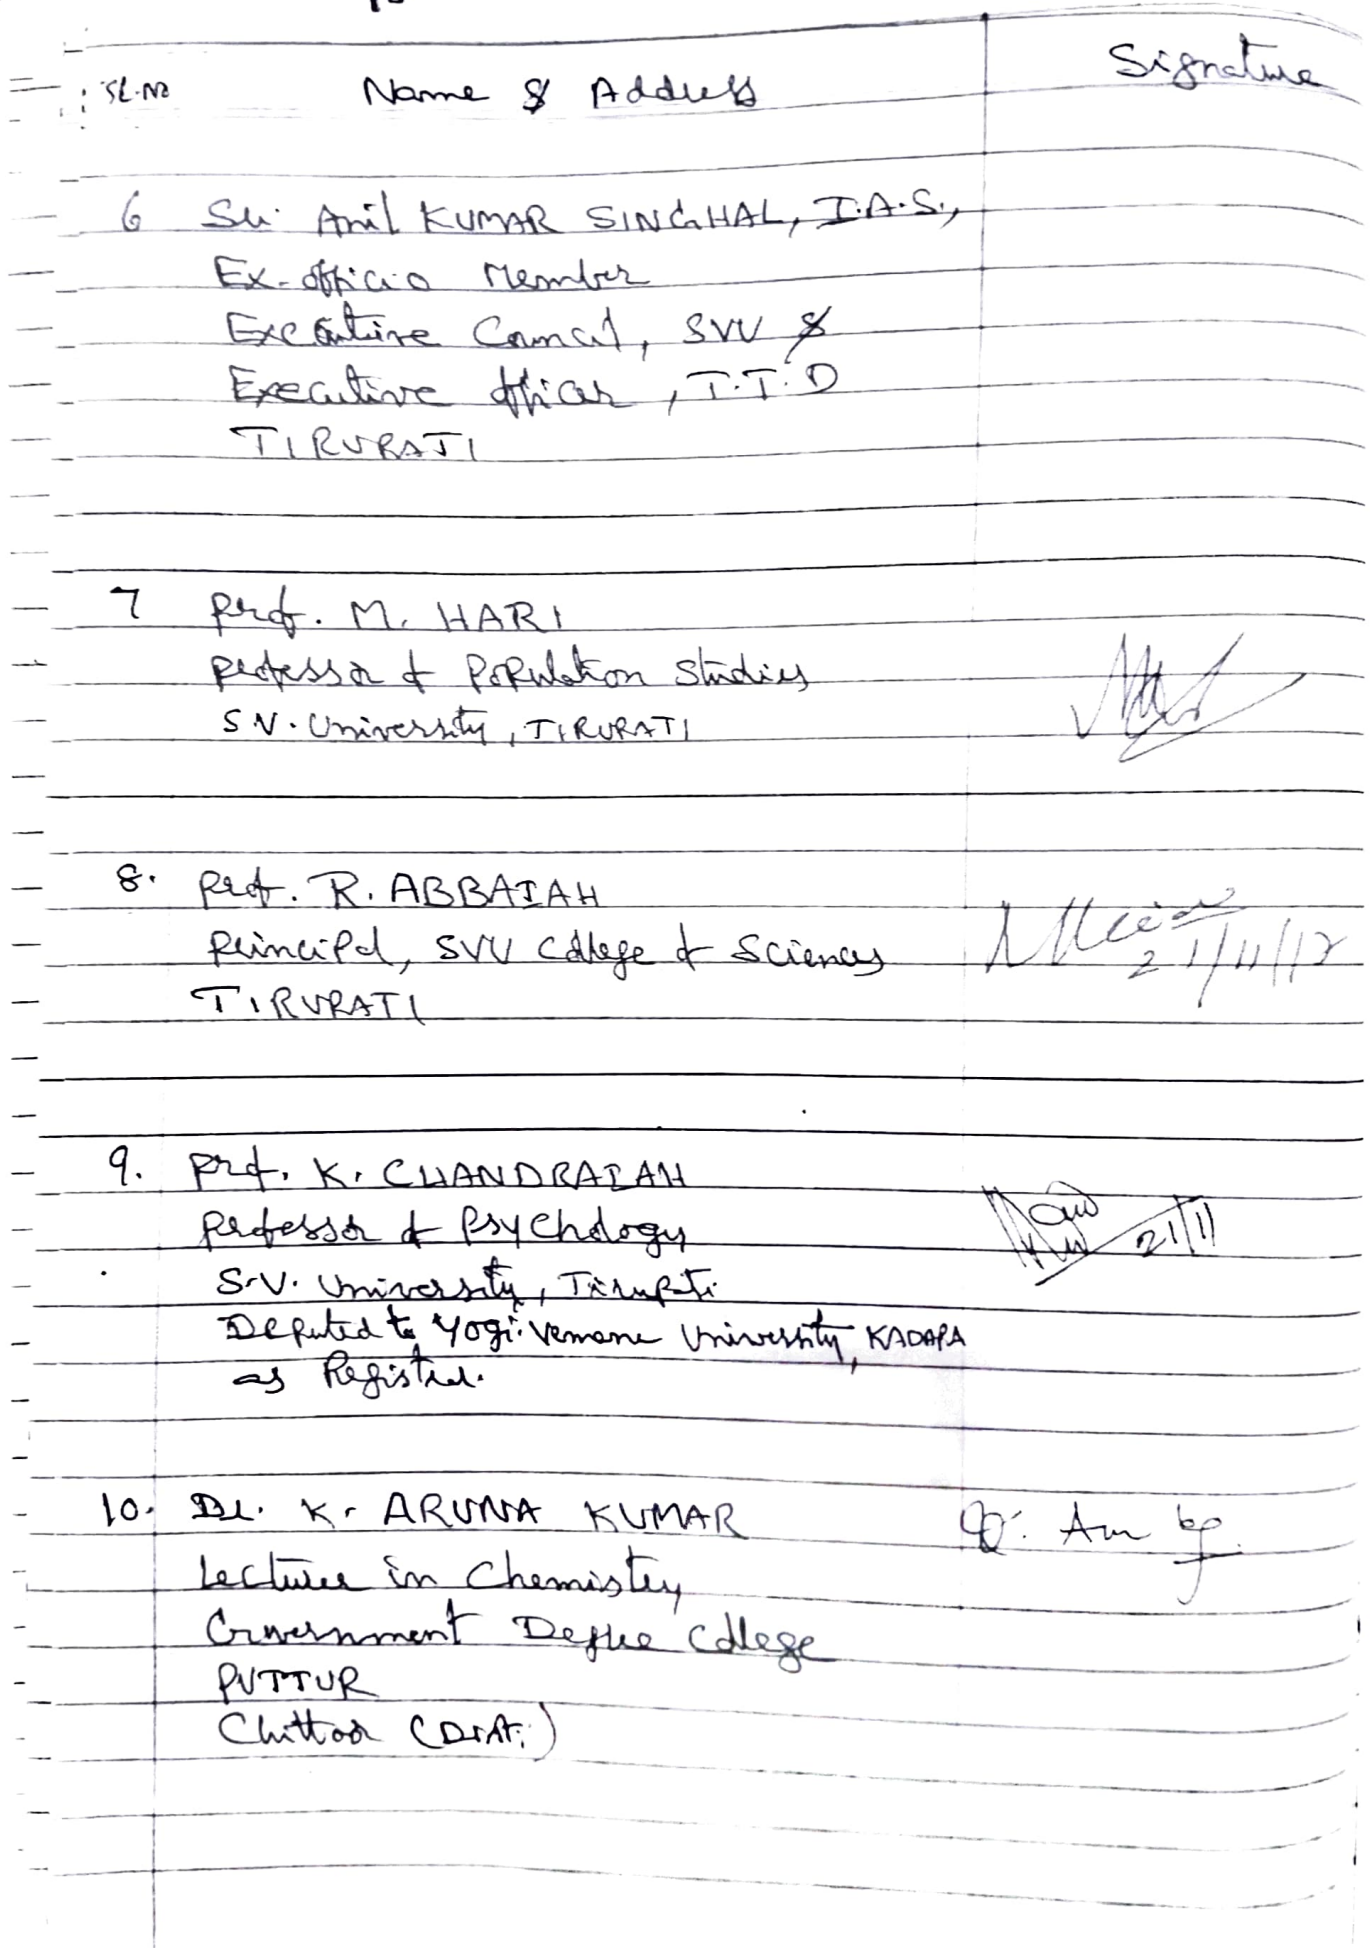 SL.No Name & Address Signature
6 Sri. Anil KUMAR SINGHAL, I.A.S.,
Ex-officio Member
Executive Council, SVU &
Executive Officer, T.T.D
TIRUPATI
7 Prof. M. HARI
Professor of Population Studies
S.V. University, TIRUPATI
8. Prof. R. ABBAIAH
Principal, SVU College of Sciences
21/11/17
TIRUPATI
9. Prof. K. CHANDRAIAH
Professor of Psychology
21/11
S.V. University, Tirupati
Deputed to Yogi Vemana University, KADAPA
as Registrar.
10. Dr. K. ARUNA KUMAR
Lecturer in Chemistry
Government Degree College
PUTTUR
Chittoor (Dist.)